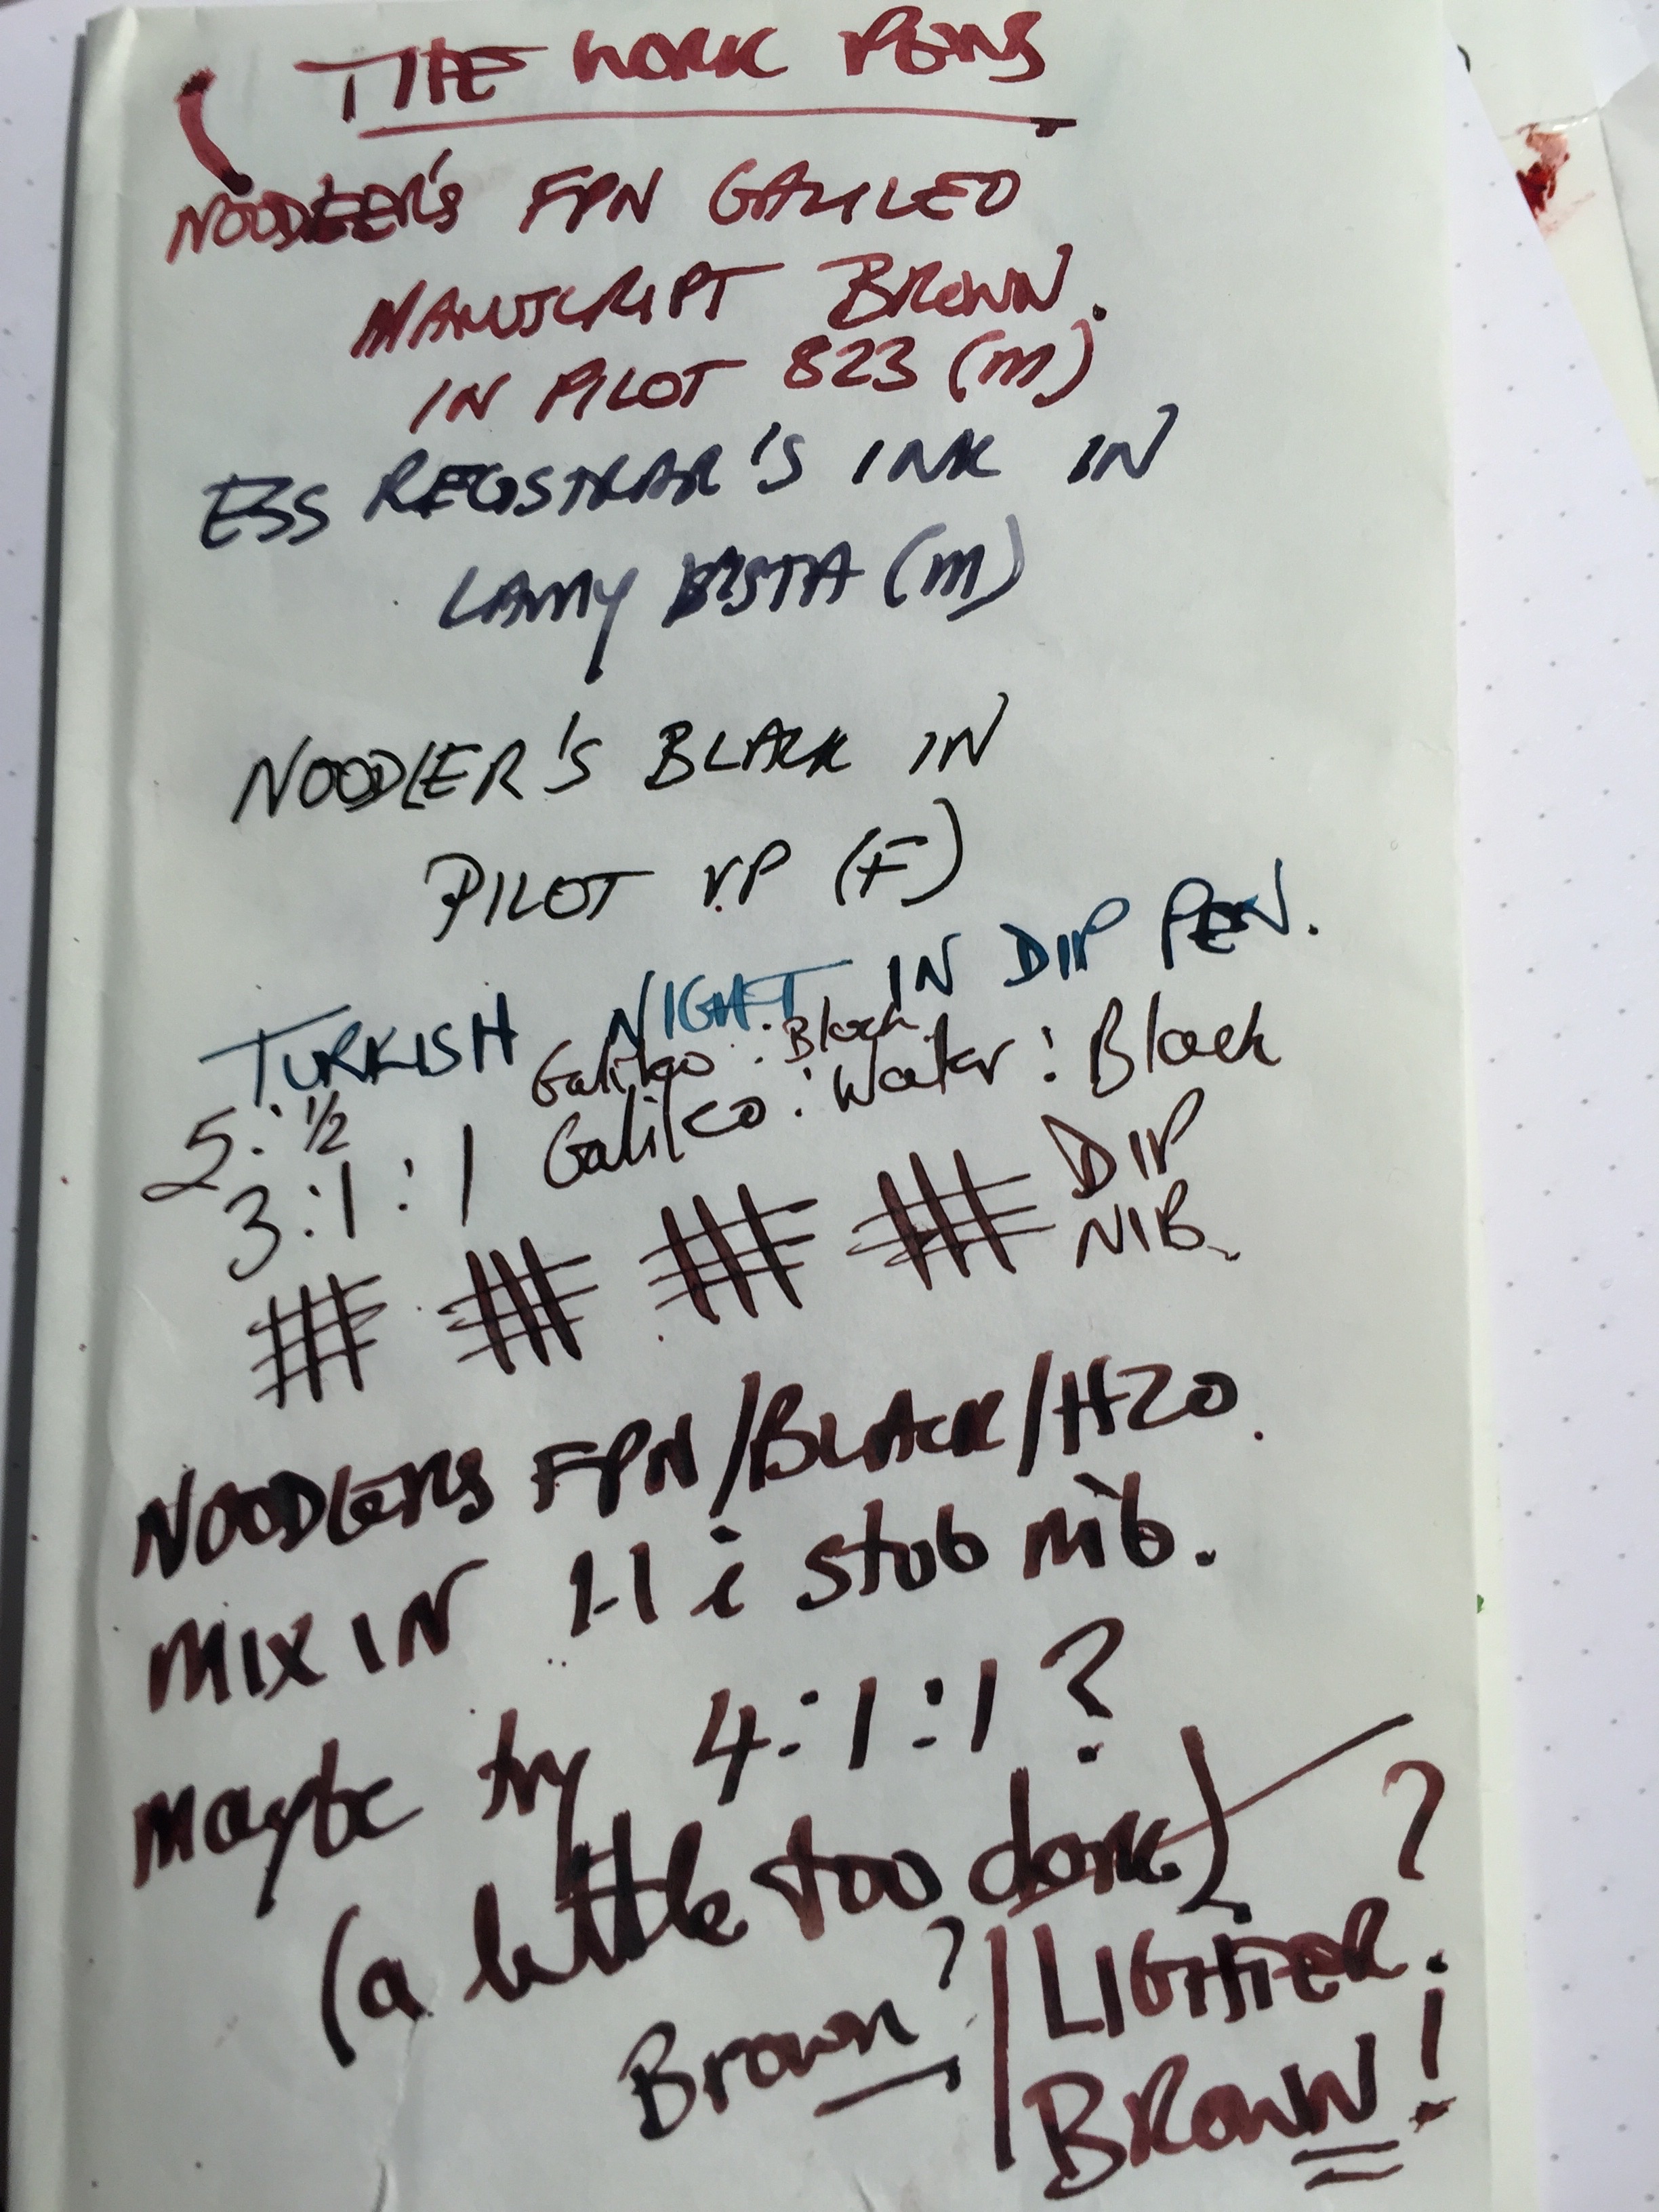 THE WORK PENS
NOODLER'S FPN GALILEO
MANUSCRIPT BROWN.
IN PILOT 823 (M)
ESS REGISTRAR'S INK IN
LAMY VISTA (M)
NOODLER'S BLACK IN
PILOT VP (F)
TURKISH NIGHT IN DIP PEN.
5:½ Galileo : Black
3:1:1 Galileo : Water : Black
DIP
NIB
NOODLERS FPN/BLACK/H2O.
MIX IN 1.1 i stub nib.
Maybe try 4:1:1?
(a little too dark) ?
Brown? LIGHTER
BROWN!